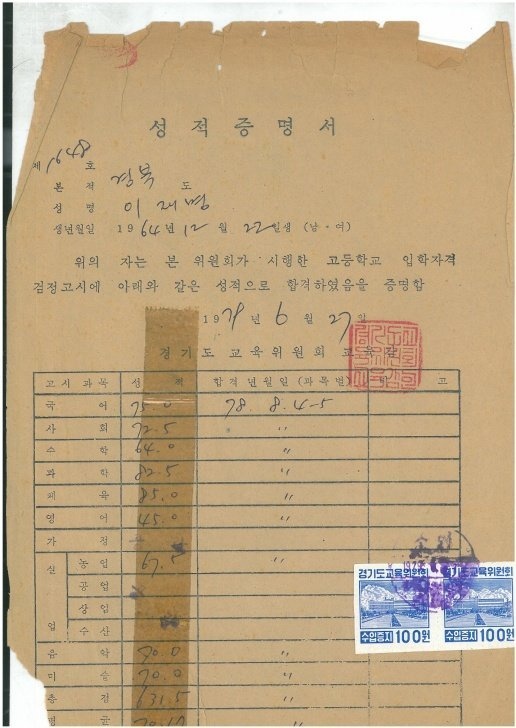 성적증명서
제 1648 호
본 적 경북 도
성 명 이재명
생년월일 1964년 12월 22일생 (남·여)
위의 자는 본 위원회가 시행한 고등학교 입학자격
검정고시에 아래와 같은 성적으로 합격하였음을 증명함
1979년 6월 27일
경기도 교육위원회 교육감
고시과목 성 적 합격년월일(과목별) 비 고
국 어 75.0 78. 8. 4-5
사 회 72.5 〃
수 학 64.0 〃
과 학 82.5 〃
체 육 85.0 〃
영 어 45.0 〃
가 정
실 업 농업 67.5 〃
공업
상업
수산
음 악 70.0 〃
미 술 70.0 〃
총 점 631.5 〃
평 균 70.17
경기도교육위원회 경기도교육위원회
수입증지 100원 수입증지 100원